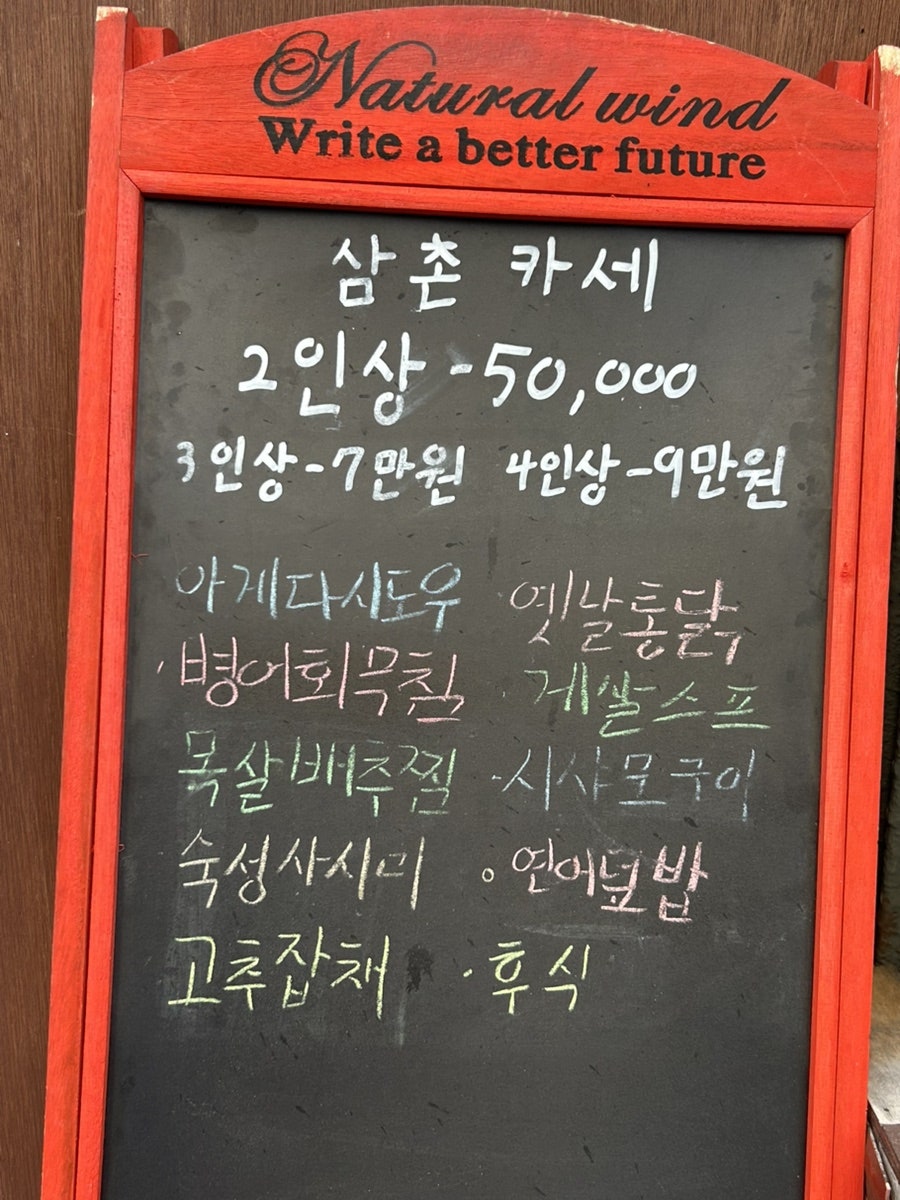 Natural wind
Write a better future
삼촌 카세
2인상-50,000
3인상-7만원 4인상-9만원
아게다시도우 옛날통닭
·병어회무침 ·게살스프
목살배추찜 ·시샤모구이
숙성사시미 ◦연어덮밥
고추잡채 ·후식